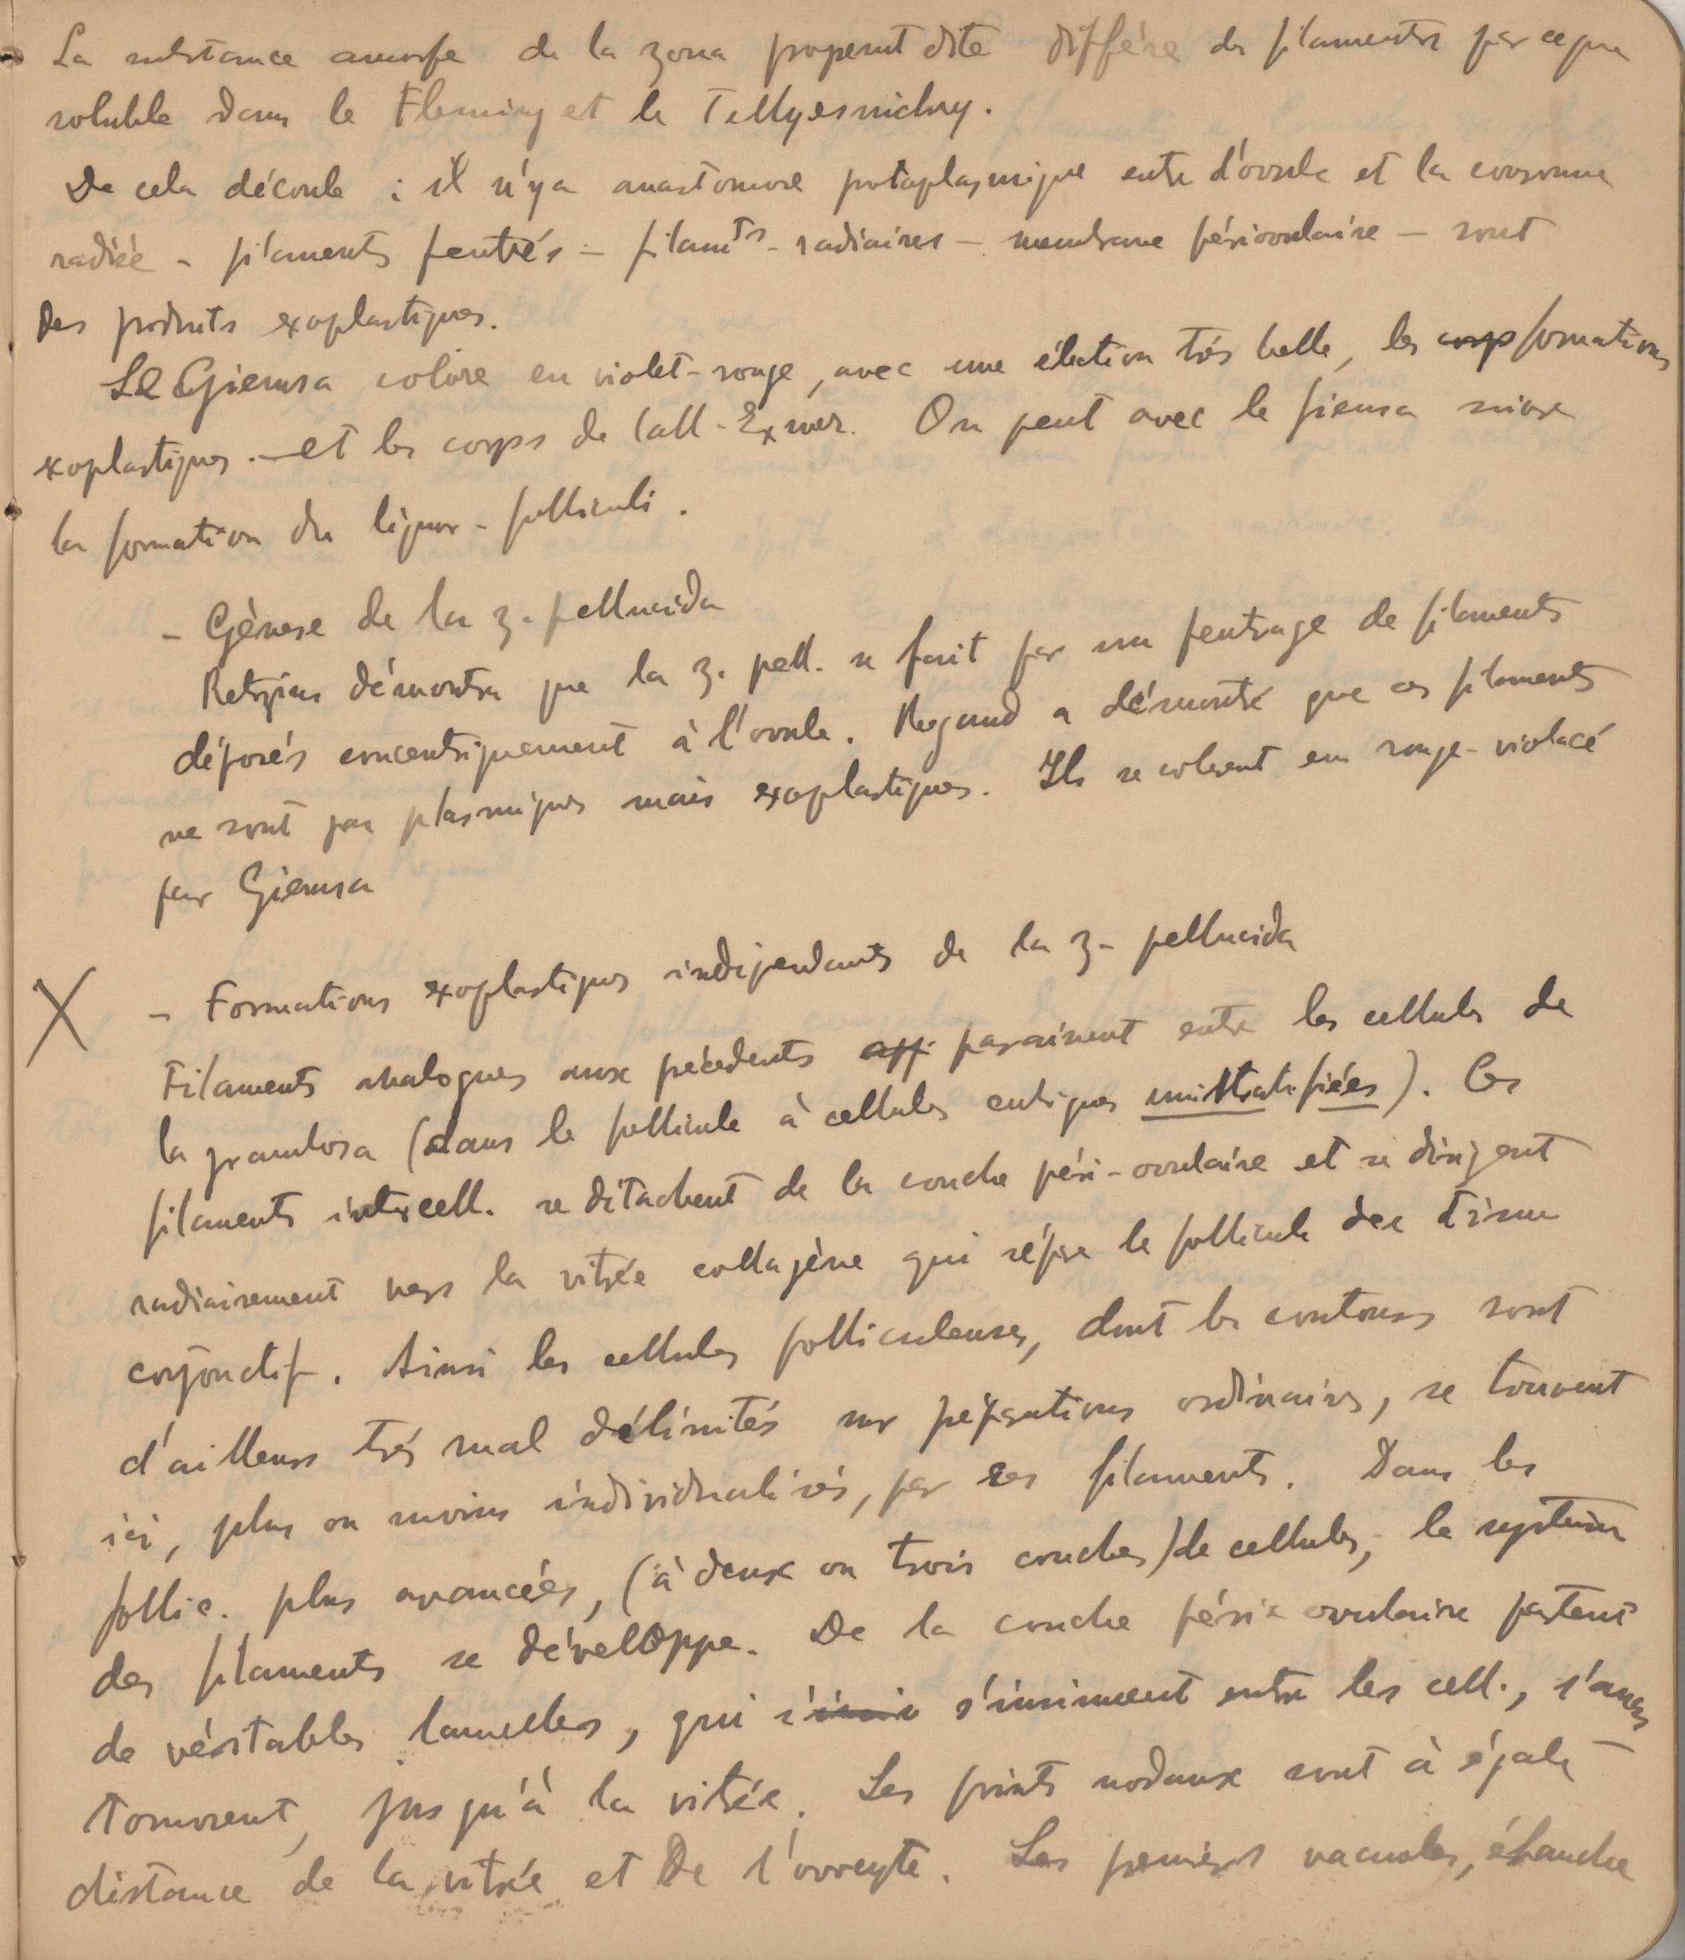 La substance amorfe de la zona propremt dite diffère des filaments par ce que
soluble dans le Fleming et le Tellyesniczky.
De cela découle : il n'y a anastomose protoplasmique entre l'ovule et la couronne
radiée - filaments feutrés - filamts - radiaires - membrane périovulaire - sont
des produits exoplastiques.
Le Giemsa colore en violet-rouge, avec une élection très belle, les corps formations
exoplastiques. - et les corps de Call-Exner. On peut avec le Giemsa suivre
la formation du liquor-folliculi.
- Génese de la z. pellucida
Retzius démontra que la z. pell. se fait par un feutrage de filaments
déposés concentriquement à l'ovule. Regaud a démontré que ces filaments
ne sont pas plasmiques mais exoplastiques. Ils se colorent en rouge-violacé
par Giemsa
X - Formations exoplastiques indépendants de la z- pellucida
Filaments analogues aux précedents app. paraissent entre les cellules de
la granulosa (dans le follicule à cellules cubiques unistratifiées). Ces
filaments intercell. se détachent de la couche péri-ovulaire et se dirigent
radiairement vers la vitrée collagène qui sépare le follicule du tissu
conjonctif. Ainsi les cellules folliculeuses, dont les contours sont
d'ailleurs très mal délimités sur préparations ordinaires, se trouvent
ici, plus ou moins individualisés, par ses filaments. Dans les
follic. plus avancées, (à deux ou trois couches) de cellules, le système
des filaments se développe. De la couche péri ovulaire partent
de véritables lamelles, qui s'insin s'insinuent entre les cell., s'anas
tomosent, jusqu'à la vitrée. Les points nodaux sont à égale
distance de la vitrée et de l'ovocyte. Les premiers vacuoles, ébauche